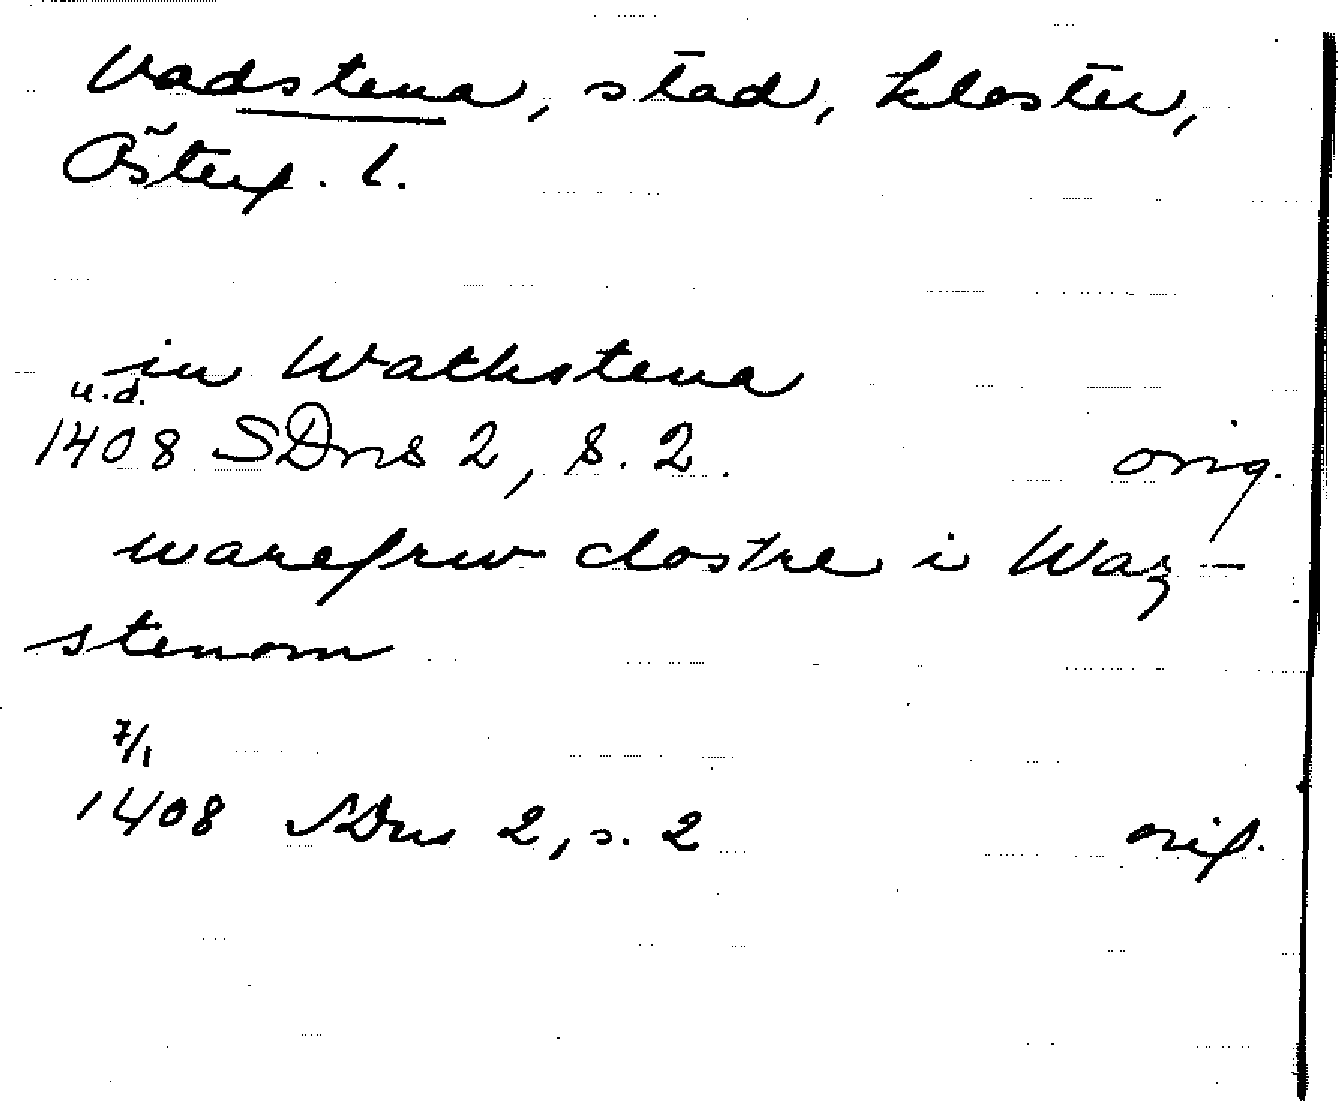 Vadstena, stad, kloster,
Österg. l.
in Wathstena
u.d.
1408 SDns 2, s. 2. orig.
warefrw clostre i Waz-
stenom
7/1
1408 SDns 2, s. 2 orig.